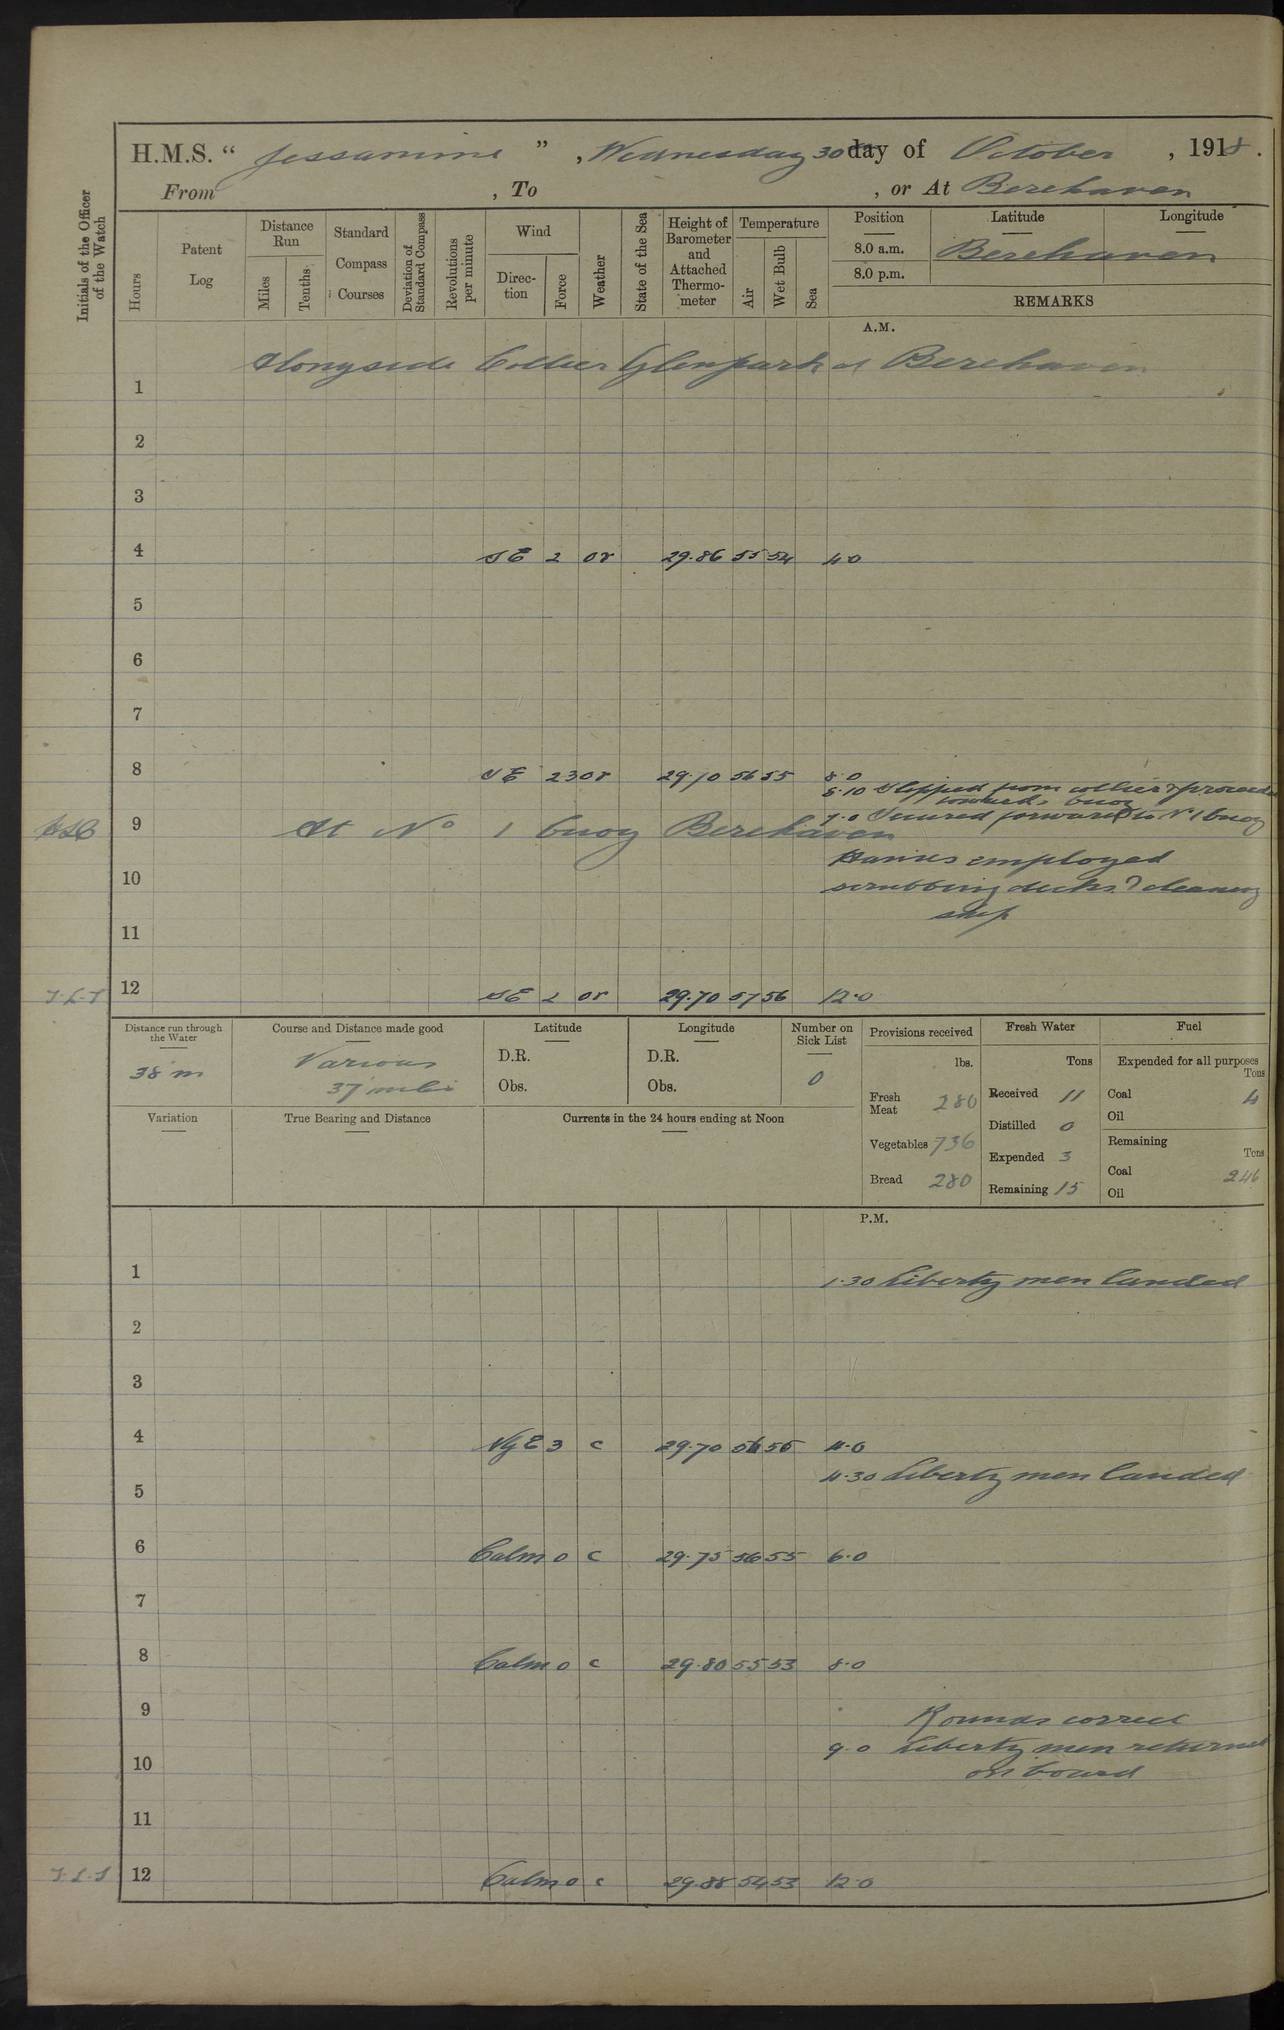 H.M.S. “ Jessamine ” , Wednesday 30 day of October , 1918 .
From , To , or At Berehaven
Initials of the Officer of the Watch
Hours
Patent Log
Distance Run
Miles
Tenths
Standard Compass Courses
Deviation of Standard Compass
Revolutions per minute
Wind
Direc-tion
Force
Weather
State of the Sea
Height of Barometer and Attached Thermo-meter
Temperature
Air
Wet Bulb
Sea
Position Latitude Longitude
8.0 a.m. Berehaven
8.0 p.m.
REMARKS
A.M.
Alongside Collier Glenpark at Berehaven
1
2
3
4 SE 2 or 29.86 55 54 4.0
5
6
7
8 SE 23 or 29.10 56 55 8.0
8.10 Slipped from collier & proceeded
towards buoy
9.0 Secured forward to No 1 buoy
9 At No 1 buoy Berehaven
Hands employed
10 scrubbing decks & cleaning
ship
11
T.L.S 12 SE 2 or 29.70 57 56 12.0
Distance run through the Water
38 m
Course and Distance made good
Various
37 miles
Latitude
D.R.
Obs.
Longitude
D.R.
Obs.
Number on Sick List
0
Provisions received
lbs.
Fresh Meat 280
Vegetables 736
Bread 280
Fresh Water
Tons
Received 11
Distilled 0
Expended 3
Remaining 15
Fuel
Expended for all purposes
Tons
Coal 4
Oil
Remaining
Tons
Coal 246
Oil
Variation
True Bearing and Distance
Currents in the 24 hours ending at Noon
P.M.
1 1.30 Liberty men landed
2
3
4 N y E 3 c 29.70 56 55 4.0
4.30 Liberty men landed
5
6 Calm 0 c 29.75 56 55 6.0
7
8 Calm 0 c 29.80 55 53 8.0
9 Rounds correct
9.0 Liberty men returned
10 on board
11
T.L.S 12 Calm 0 c 29.88 54 53 12.0